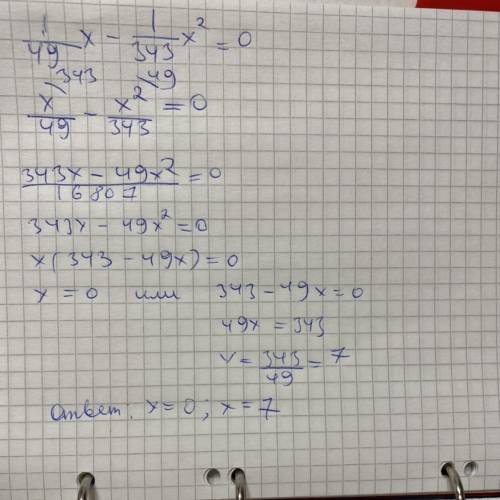 1/49 x - 1/343 x² = 0
343 49
x/49 - x²/343 = 0
343x - 49x²/16807 = 0
343x - 49x² = 0
x(343 - 49x) = 0
x = 0 или 343 - 49x = 0
49x = 343
x = 343/49 = 7
Ответ: x = 0; x = 7